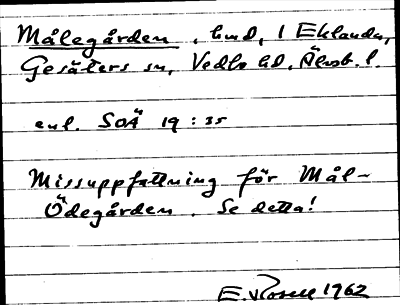 Målegården, hmd, 1 Eklanda,
Gesäters sn, Vedbo hd, Älvsb. l.
enl. SOÄ 19 : 35
Missuppfattning för Mål-
Ödegården. Se detta!
E. Rosell 1962